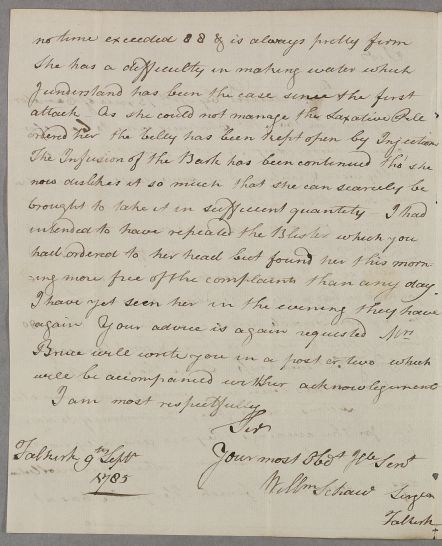 no time exceeded 88 & is always pretty firm
She has a difficulty in making water which
I understand has been the case since the first
attack As she could not manage the Laxative Pills
ordered her the belly has been kept open by Injections
The Infusion of the Bark has been continued tho' she
now dislikes it so much that she can scarcely be
brought to take it in sufficient quantity I had
intended to have repeated the Blister which you
had ordered to her head but found her this morn-
-ing more free of the complaints than any day
I have yet seen her in the evening they have
again Your advice is again requested Mrs
Bruce will write you in a post or two which
will be accompanied with her acknowlegement
I am most respectfully
Sir
Your most Obdt Hble Servt
Willm Schaw Surgeon
Falkirk
Falkirk 9th Septr
1785